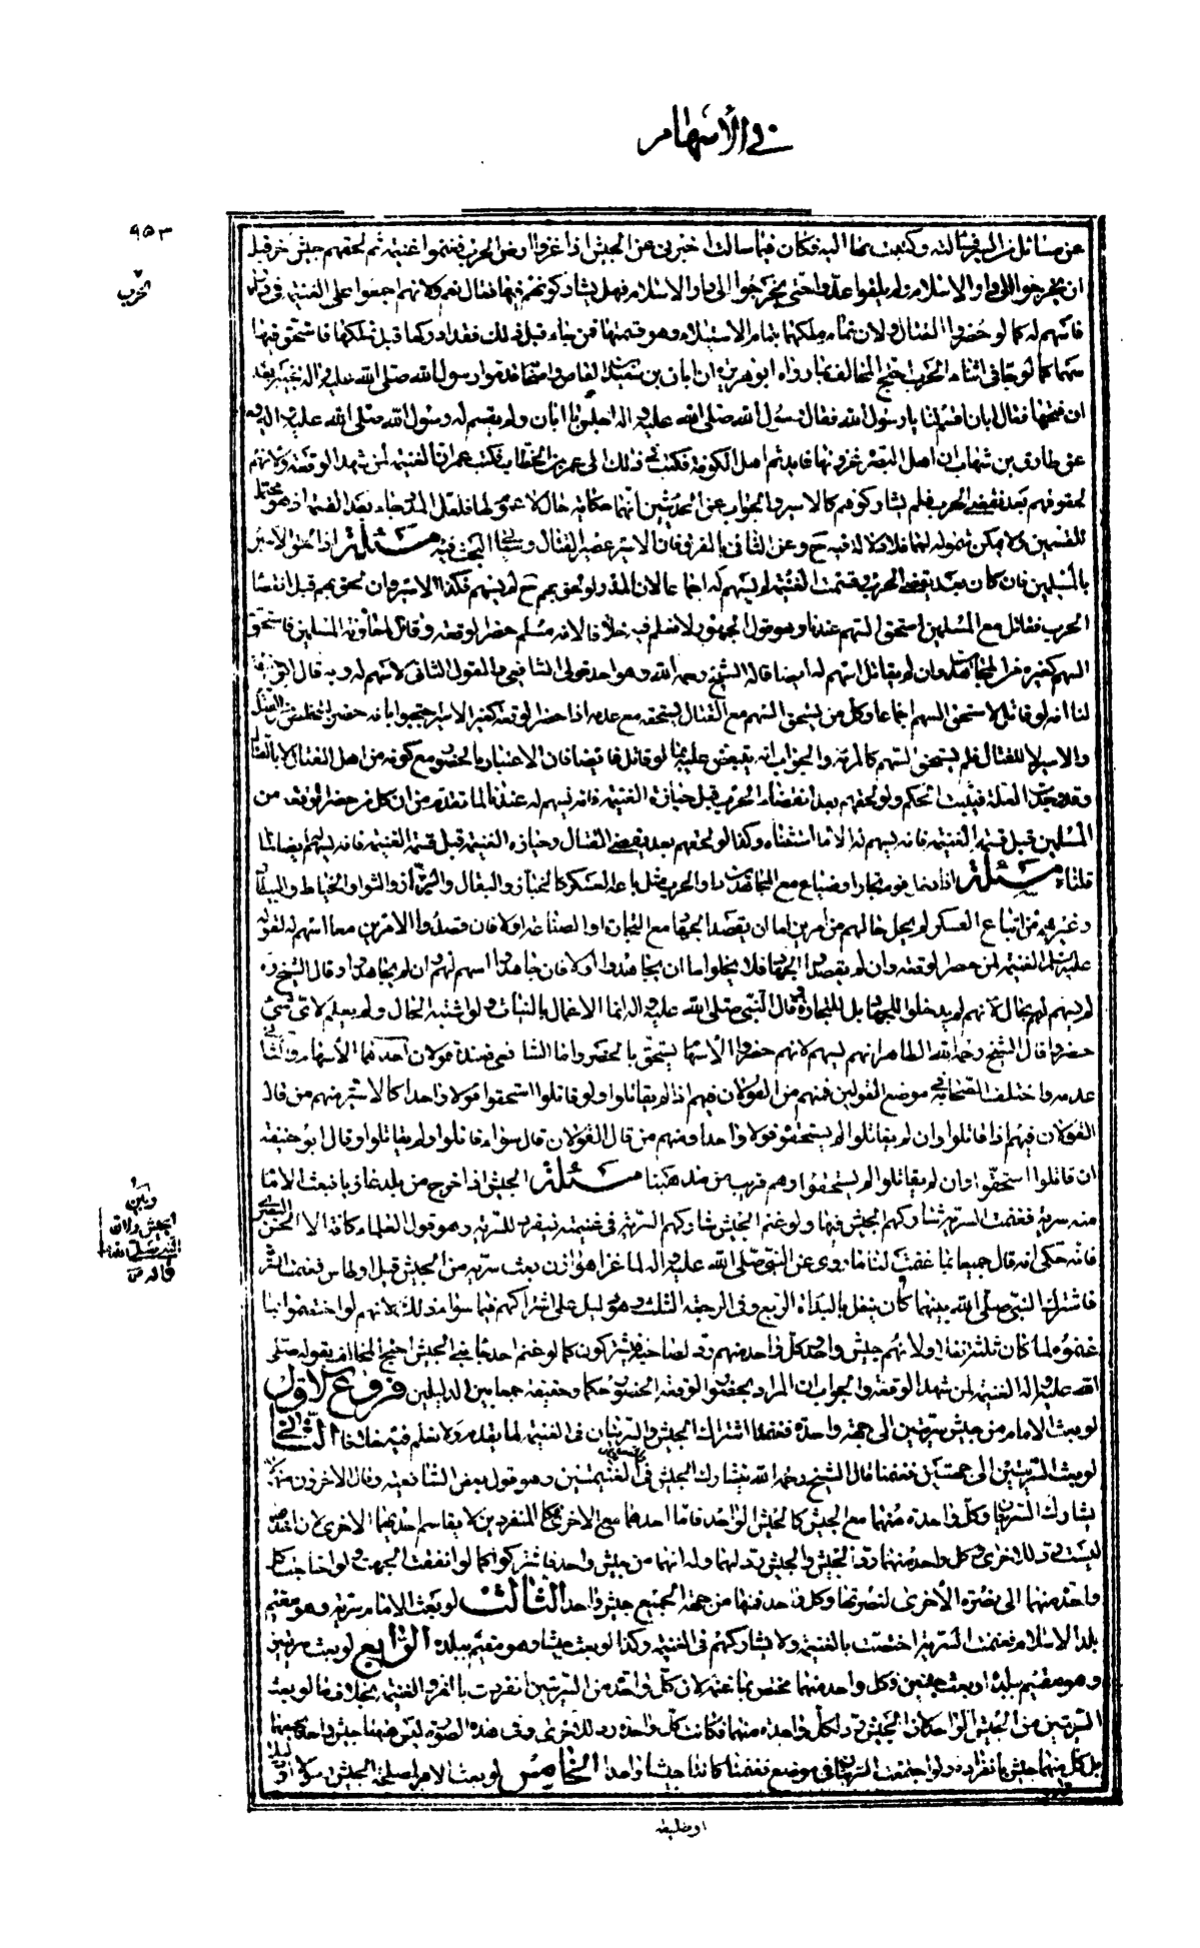 في الأسهام
٩٥٣
الحرب
عن مسائل من السير فسألته وكتبت بها اليه فكان فيما سالت اخبرني عن الجيش اذا غزوا ارض الحرب فغنموا غنيمة ثم لحقهم جيش اخر قبل
ان يخرجوا الى دار الاسلام ولم يلقوا عدوا حتى يخرجوا الى دار الاسلام فهل يشاركونهم فيها فقال نعم ولانهم اجتمعوا على الغنيمة في دارها
فاسهم له كما لو حضروا القتال ولان تمام ملكها بتمام الاستيلاء وهو قسمتها فمن جاء قبل ذلك فقد ادركها قبل تملكها فاستحق فيها
سهما كما لو جا في اثناء الحرب احتج المخالف بما رواه ابو هريرة ان ابان بن سعيد بن العاص واصحابه قدموا رسول الله صلى الله عليه واله بخيبر بعد
ان فتحها فقال ابان اقسم لنا يا رسول الله فقال رسول الله صلى الله عليه واله اجلس يا ابان ولم يقسم له رسول الله صلى الله عليه واله و
عن طارق بن شهاب ان اهل البصرة غزوا نهاوند فامدهم اهل الكوفة فكتب في ذلك الى عمر بن الخطاب فكتب عمر ان الغنيمة لمن شهد الوقعة ولانهم
لحقوهم بعد تقضي الحرب فلم يشاركوهم كالاسير والجواب عن الحديثين انهما حكاية حال لا عموم لها فلعل المدد جاء بعد القسمة اذ هو محتمل
للقسمين ولا يمكن شموله لهما فلا دلالة فيه ح وعن الثاني بالفرق فان الاسير غصبه القتال وسيأتي البحث فيه مسئلة اذا لحق الاسير
بالمسلمين فان كان بعد تقضي الحرب وقسمت الغنيمة لم يسهم له اجماعا لان المدد لو لحق بهم ح لم يسهم فكذا الاسير وان لحق بهم قبل انقضاء
الحرب فقاتل مع المسلمين استحق السهم عندنا وهو قول الجمهور لا نعلم فيه خلافا لانه مسلم حضر الوقعة وقاتل لمعاونة المسلمين فاستحق
السهم كغيره من المجاهدين وان لم يقاتل اسهم له ايضا قاله الشيخ رحمه الله وهو احد قولي الشافعي والقول الثاني لا سهم له وبه قال ابو حنيفة
لنا انه لو قاتل لاستحق السهم اجماعا وكل من يستحق السهم مع القتال يستحقه مع عدمه اذا حضر الوقعة كغير الاسير احتجوا بانه حضر ليتخلص من القتل
والاسر لا للقتال فلم يستحق السهم كالمرأة والجواب انه ينتقض عليهم بما لو قاتل فايضا فان الاعتبار بالحضور مع كونه من اهل القتال لا بالقتال
وقد وجدت العلة فيثبت الحكم ولو لحقهم بعد انقضاء الحرب قبل حيازة الغنيمة فانه يسهم له عندنا لما تقدم من ان كل من حضر الوقعة من
المسلمين قبل قسمة الغنيمة فانه يسهم له الا ما استثناه وكذا لو لحقهم بعد تقضي القتال وحيازة الغنيمة قبل قسمة الغنيمة فانه يسهم ايضا لما
قلناه مسئلة اذا دخل قوم تجار او صناع مع المجاهدين دار الحرب مثل باعة العسكر كالخباز والبقال والبزاز والشواء والخياط والبيطار
وغيرهم من اتباع العسكر لم يخل حالهم من امرين اما ان يقصدوا الجهاد مع التجارات او الصناعة او لا فان قصدوا الامرين معا اسهم له لقوله
عليه السلم الغنيمة لمن حضر الوقعة وان لم يقصدوا الجهاد فلا يخلوا اما ان يجاهدوا او لا فان جاهدوا اسهم لهم وان لم يجاهدوا قال الشيخ ره
لم يسهم لهم بحال لانهم لم يدخلوا للجهاد بل للتجارة وقال النبي صلى الله عليه واله انما الاعمال بالنيات ولو اشتبه الحال ولم يعلم لاي شيء
حضروا قال الشيخ رحمه الله الظاهر انهم يسهم لانهم حضروا والاسهام يستحق بالحضور واما الشافعي فعنده قولان احدهما الأسهام والثاني
عدمه واختلف اصحابه في موضع القولين فمنهم من قال القولان فيهم اذا لم يقاتلوا ولو قاتلوا استحقوا قولا واحدا كالاسير ومنهم من قال
القولان فيهم اذا قاتلوا وان لم يقاتلوا لم يستحقوا قولا واحدا ومنهم من قال القولان قال سواء قاتلوا ولم يقاتلوا وقال ابو حنيفة
ان قاتلوا استحقوا وان لم يقاتلوا لم يستحقوا وهم قريب من مذهبنا مسئلة الجيش اذا خرج من بلد غازيا فبعث الامام
منه سرية فغنمت السرية شاركهم الجيش فيها ولو غنم الجيش شاركهم السرية في غنيمته تنفرد للسرية وهو قول العلماء كافة الا الحسن البصري
فانه حكي انه قال جميعا بما غنمت لنا ما روي عن النبي صلى الله عليه واله لما غزا هوازن بعث سرية من الجيش قبل اوطاس فغنمت السرية
فاشترك النبي صلى الله بينهما وكان ينفل بالبداة الربع وفي الرجعة الثلث وهو دليل على اشتراكهم فيما سوا ذلك لانهم لو اختصوا بما
غنموه لما كان ثلثه نفلا ولانهم جيش واحد وكل واحد منهم ردء لصاحبه فيشتركون كما لو غنم احد جانبي الجيش احتج المخالف بقوله صلى
الله عليه واله الغنيمة لمن شهد الوقعة والجواب ان المراد بحضور الوقعة الحضور حكما وحقيقة جمعا بين الدليلين فروع الاول
لو بعث الامام من جيش سريتين الى جهة واحدة فغنمتا اشترك الجيش والسريتان في الغنيمة لما تقدم ولا نعلم فيه مخالفا الثاني
لو بعث السريتين الى جهتين فغنمتا قال الشيخ رحمه الله يتشارك الجيش في الغنيمتين وهو قول بعض الشافعية وقال الاخرون منهم لا
يشارك السريتان وكل واحدة منهما مع الجيش كالجيش الواحد فاما احدهما مع الاخرى فكالمنفردين لا يقاسم احديهما الاخرى لان احدهما
ليست ردء للاخرى وكل واحد منهما ردء الجيش والجيش ردء لهما ولنا انهما من جيش واحد فاشتركوا كما لو اتفقت الجهة ولو احتاجت كل
واحدة منهما الى نصرة الأخرى لنصرتها وكل واحد فيها من جهة الجميع جيش واحد الثالث لو بعث الامام سرية وهو مقيم
ببلد الاسلام فغنمت السرية اختصت بالغنيمة ولا يشاركهم في الغنيمة وكذا لو بعث جيشا وهو مقيم ببلده الرابع لو بعث سريتين
وهو مقيم ببلده او بعث جيشين فكل واحد منهما مختص بما غنم لان كل واحد من السريتين انفردت بالغزو والغنيمة بخلاف ما لو بعث
السريتين من الجيش الواحد لان الجيش ردء لكل واحدة منهما فكانت كل واحدة ردء للاخرى وفي هذه الصورة ليس هيهنا جيش واحد يجمعهما
بل كل منهما جيش بانفراده ولو اجتمعت السريتان في موضع فغنمتا كانتا جيشا واحدا الخامس لو بعث الامير لمصلحة الجيش رسولا او دليلا
وبين
الجيش ولان
النبي صلى الله
قاله ص
او طليعة